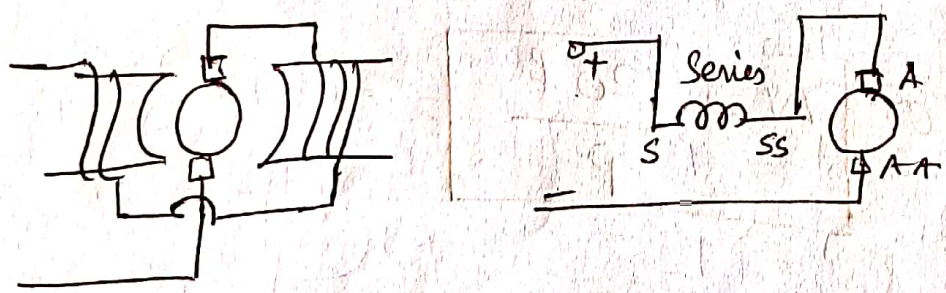 +
Series
A
S
SS
A-A
-